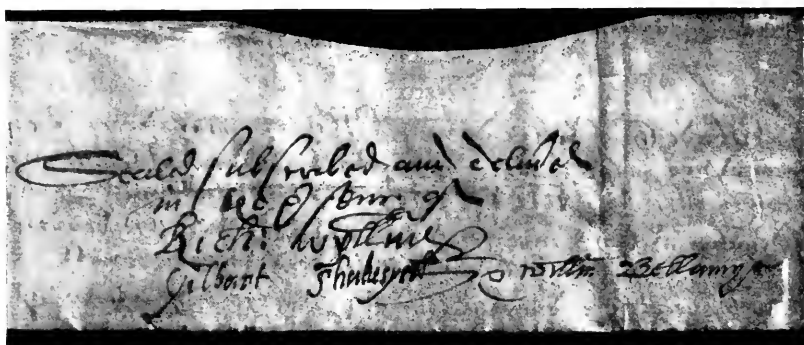 Sealed subscribed and delivered
in the presence of
Rich: Wyllmes
Gilbart Shakespere Willm Bellamye